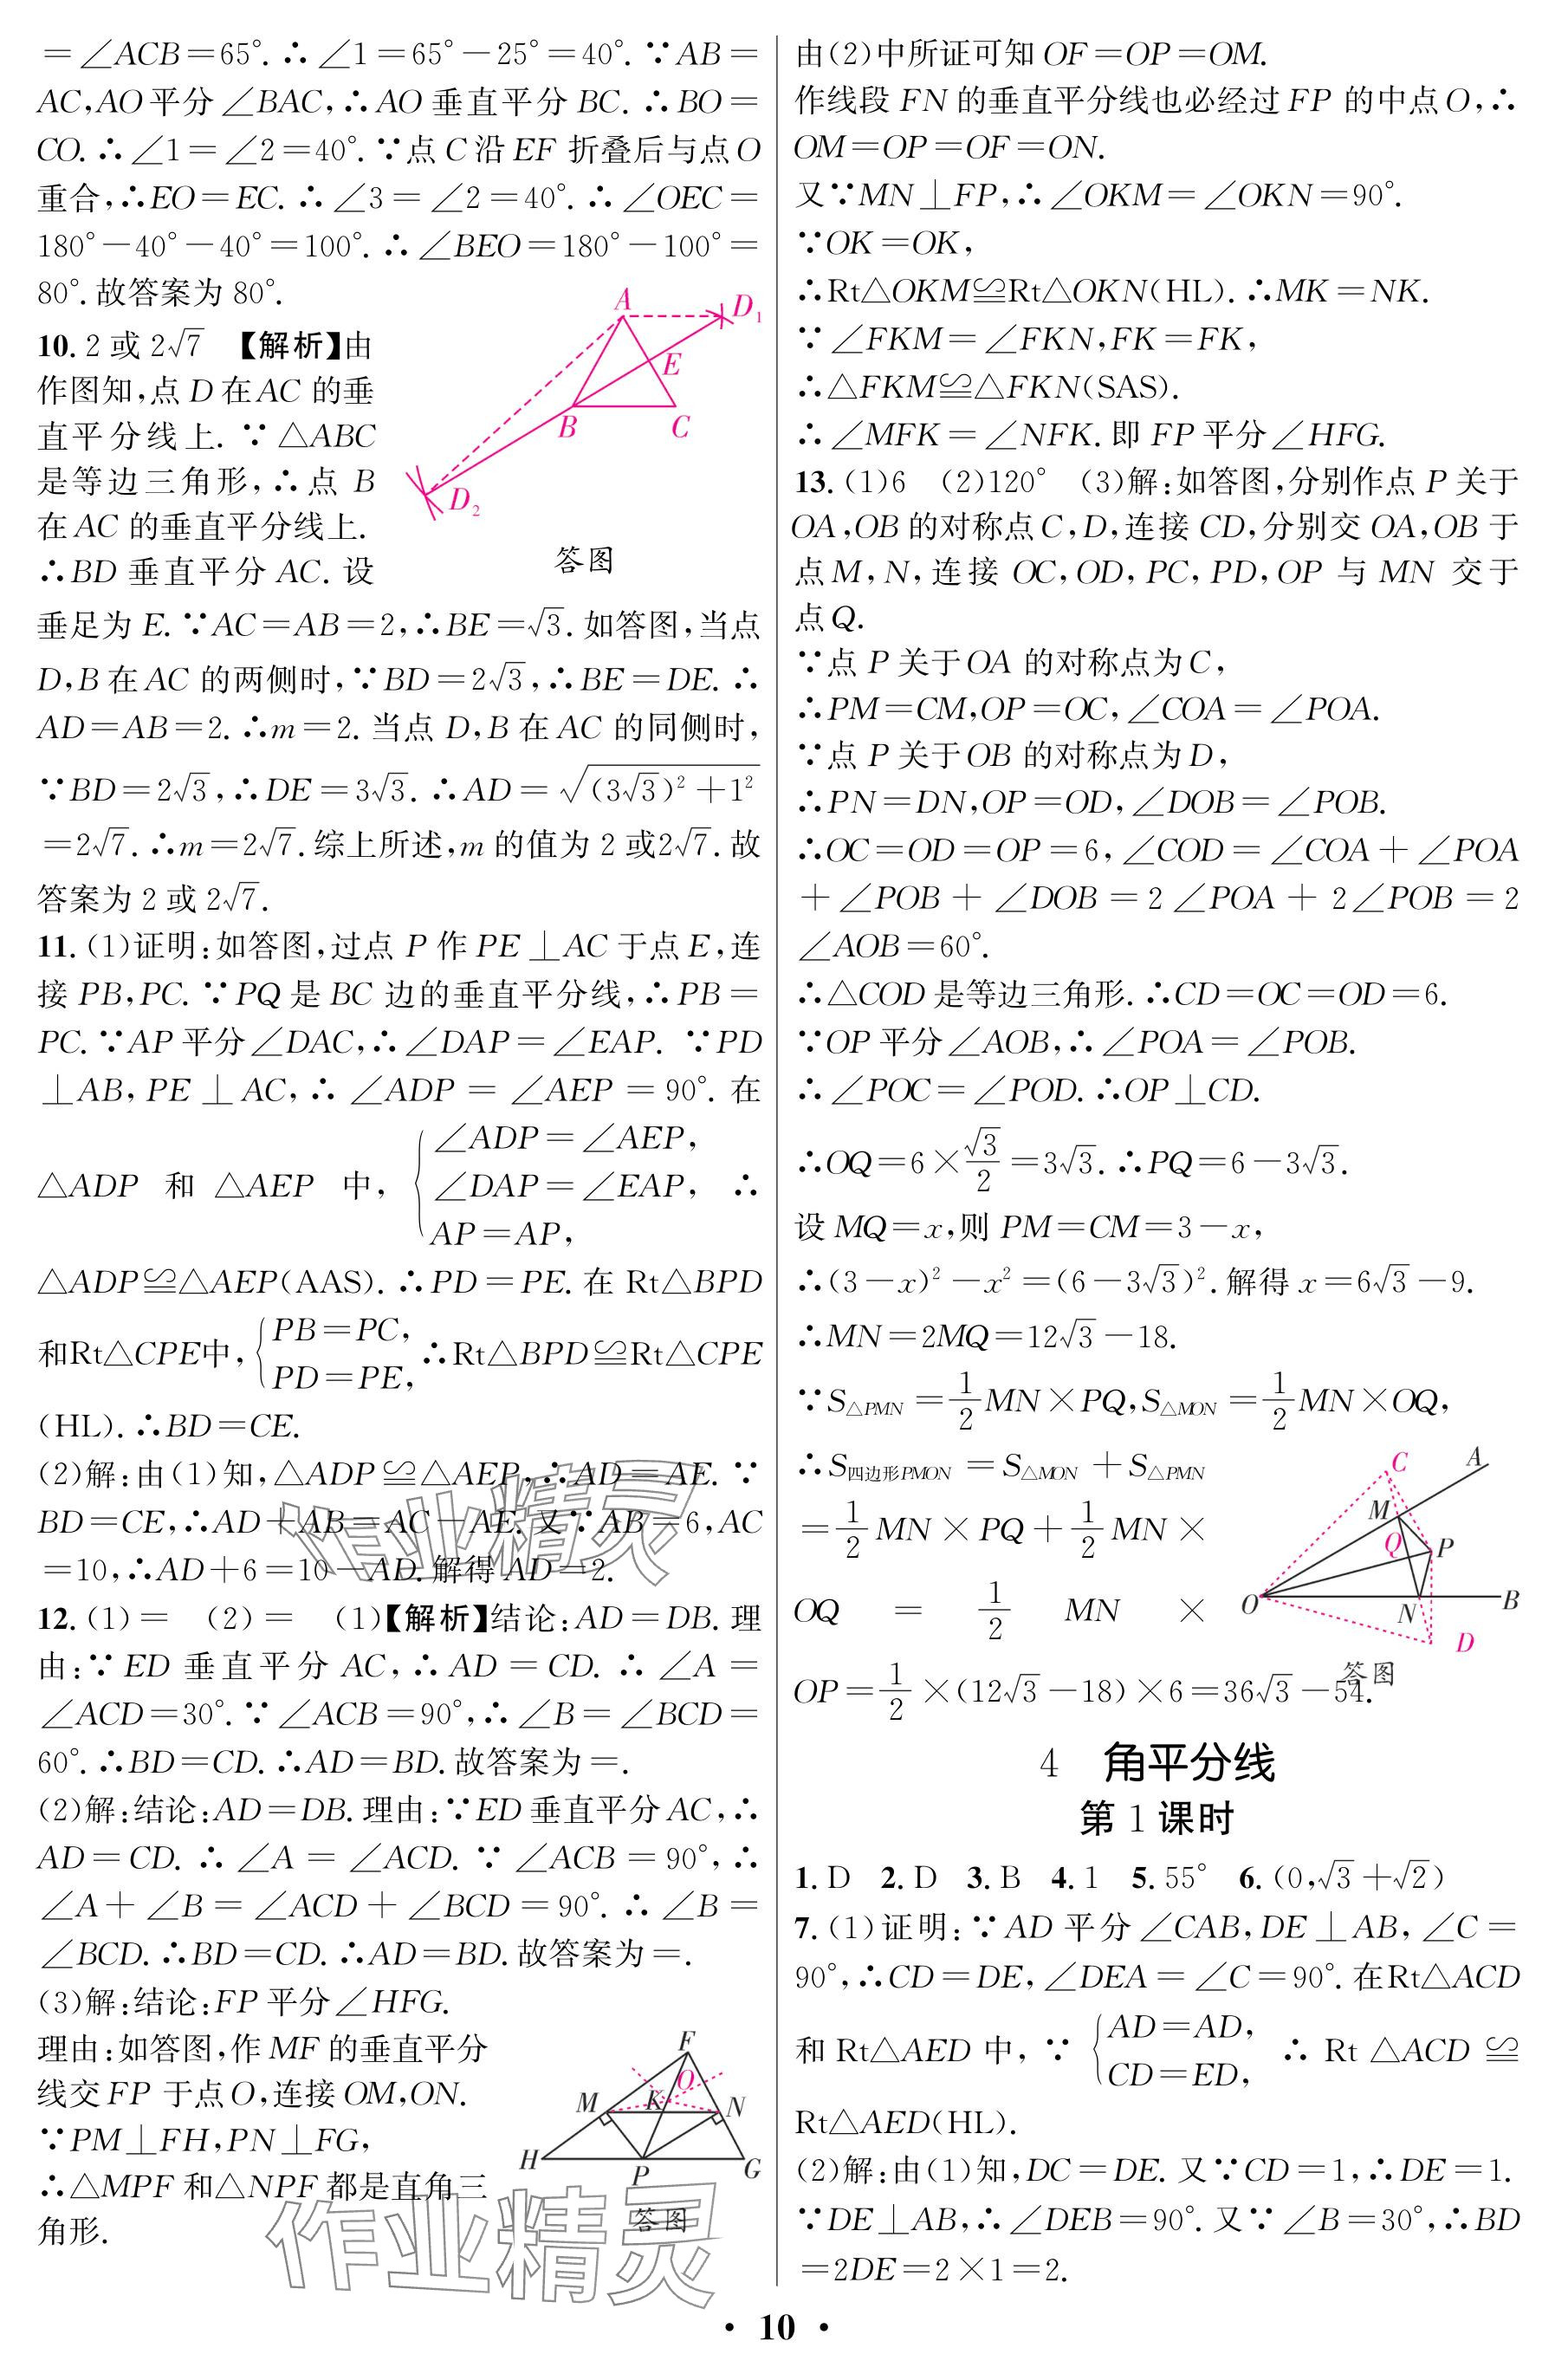 =∠ACB=65°.∴∠1=65°-25°=40°.∵AB=
AC,AO平分∠BAC,∴AO垂直平分BC.∴BO=
CO.∴∠1=∠2=40°.∵点C沿EF折叠后与点O
重合,∴EO=EC.∴∠3=∠2=40°.∴∠OEC=
180°-40°-40°=100°.∴∠BEO=180°-100°=
80°.故答案为80°.
10. 2或2√7 【解析】由
作图知,点D在AC的垂
直平分线上.∵△ABC
是等边三角形,∴点B
在AC的垂直平分线上.
∴BD垂直平分AC.设
A
D₁
E
B
C
D₂
答图
垂足为E.∵AC=AB=2,∴BE=√3.如答图,当点
D,B在AC的两侧时,∵BD=2√3,∴BE=DE.∴
AD=AB=2.∴m=2.当点D,B在AC的同侧时,
∵BD=2√3,∴DE=3√3.∴AD=√((3√3)²+1²)
=2√7.∴m=2√7.综上所述,m的值为2或2√7.故
答案为2或2√7.
11. (1)证明:如答图,过点P作PE⊥AC于点E,连
接PB,PC.∵PQ是BC边的垂直平分线,∴PB=
PC.∵AP平分∠DAC,∴∠DAP=∠EAP. ∵PD
⊥AB,PE⊥AC,∴∠ADP=∠AEP=90°.在
△ADP和△AEP中,{∠ADP=∠AEP,
∠DAP=∠EAP, ∴
AP=AP,
△ADP≌△AEP(AAS).∴PD=PE.在Rt△BPD
和Rt△CPE中,{PB=PC,
PD=PE,∴Rt△BPD≌Rt△CPE
(HL).∴BD=CE.
(2)解:由(1)知,△ADP≌△AEP,∴AD=AE.∵
BD=CE,∴AD+AB=AC-AE.又∵AB=6,AC
=10,∴AD+6=10-AD.解得AD=2.
作业精灵
12. (1)= (2)= (1)【解析】结论:AD=DB.理
由:∵ED垂直平分AC,∴AD=CD.∴∠A=
∠ACD=30°.∵∠ACB=90°,∴∠B=∠BCD=
60°.∴BD=CD.∴AD=BD.故答案为=.
(2)解:结论:AD=DB.理由:∵ED垂直平分AC,∴
AD=CD.∴∠A=∠ACD.∵∠ACB=90°,∴
∠A+∠B=∠ACD+∠BCD=90°.∴∠B=
∠BCD.∴BD=CD.∴AD=BD.故答案为=.
(3)解:结论:FP平分∠HFG.
理由:如答图,作MF的垂直平分
线交FP于点O,连接OM,ON.
∵PM⊥FH,PN⊥FG,
∴△MPF和△NPF都是直角三
角形.
F
O
M
K
N
H
P
G
答图
作业精灵
由(2)中所证可知OF=OP=OM.
作线段FN的垂直平分线也必经过FP的中点O,∴
OM=OP=OF=ON.
又∵MN⊥FP,∴∠OKM=∠OKN=90°.
∵OK=OK,
∴Rt△OKM≌Rt△OKN(HL).∴MK=NK.
∵∠FKM=∠FKN,FK=FK,
∴△FKM≌△FKN(SAS).
∴∠MFK=∠NFK.即FP平分∠HFG.
13. (1)6 (2)120° (3)解:如答图,分别作点P关于
OA,OB的对称点C,D,连接CD,分别交OA,OB于
点M,N,连接OC,OD,PC,PD,OP与MN交于
点Q.
∵点P关于OA的对称点为C,
∴PM=CM,OP=OC,∠COA=∠POA.
∵点P关于OB的对称点为D,
∴PN=DN,OP=OD,∠DOB=∠POB.
∴OC=OD=OP=6,∠COD=∠COA+∠POA
+∠POB+∠DOB=2∠POA+2∠POB=2
∠AOB=60°.
∴△COD是等边三角形.∴CD=OC=OD=6.
∵OP平分∠AOB,∴∠POA=∠POB.
∴∠POC=∠POD.∴OP⊥CD.
∴OQ=6×√3/2=3√3.∴PQ=6-3√3.
设MQ=x,则PM=CM=3-x,
∴(3-x)²-x²=(6-3√3)².解得x=6√3-9.
∴MN=2MQ=12√3-18.
∵S△PMN=1/2MN×PQ,S△MON=1/2MN×OQ,
∴S四边形PMON=S△MON+S△PMN
=1/2MN×PQ+1/2MN×
OQ=1/2MN×
OP=1/2×(12√3-18)×6=36√3-54.
C
A
M
Q
P
O
N
B
D
答图
4 角平分线
第1课时
1. D 2. D 3. B 4. 1 5. 55° 6. (0,√3+√2)
7. (1)证明:∵AD平分∠CAB,DE⊥AB,∠C=
90°,∴CD=DE,∠DEA=∠C=90°.在Rt△ACD
和Rt△AED中,∵{AD=AD,
CD=ED, ∴Rt△ACD≌
Rt△AED(HL).
(2)解:由(1)知,DC=DE.又∵CD=1,∴DE=1.
∵DE⊥AB,∴∠DEB=90°.又∵∠B=30°,∴BD
=2DE=2×1=2.
· 10 ·